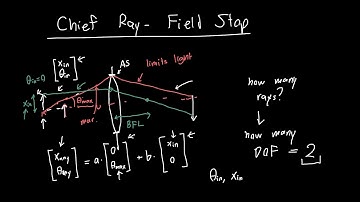 Chief Ray - Field Stop
[x_in
θ_in]
AS
θ_in=0
limits light
x_in
θ_max
mar.
BFL
how many rays?
how many DOF = 2
[x_any
θ_any] = a·[0
θ_max] + b·[x_in
0]
θ_in, x_in